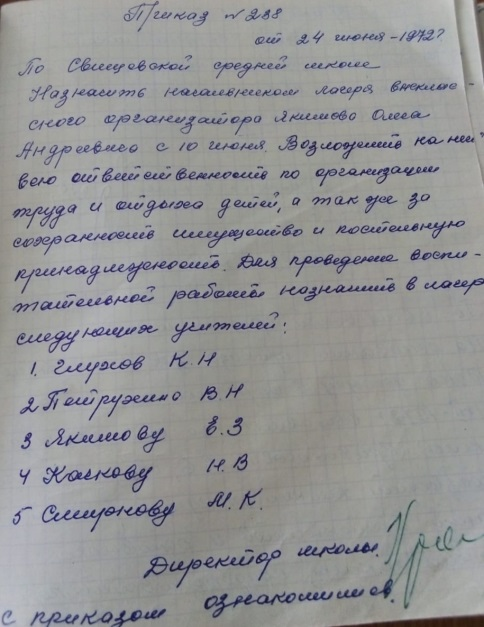 Приказ № 238
от 24 июня -1972г
По Свищовской средней школе
Назначить начальником лагеря внекла-
сного организатора Якимова Олега
Андреевича с 10 июня. Возложить на неи
всю ответственность по организации
труда и отдыха детей, а так же за
сохранность имущество и постельную
принадлежность. Для проведение воспи-
тательной работы назначить в лагер
следующих учителей:
1. Глухов К.Н
2 Петрухино В.Н
3 Якимову Е.З
4 Качкову Н.В
5 Смирнову М.К.
Директор школы.
С приказом ознакомились.